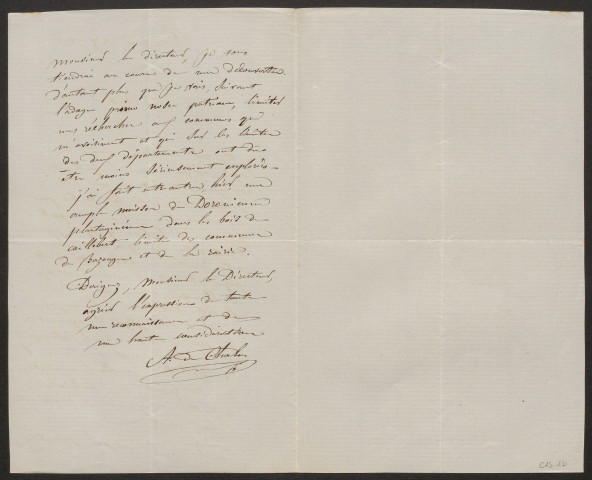 Monsieur le directeur, je vous
tiendrai au courant de mes découvertes
d'autant plus que je vais, suivant
l'adage primo nosce patriam, limiter
mes recherches aux communes qui
m'avoisinent et qui sur les limites
des deux départements ont dû
être moins sérieusement explorées.
j'ai fait entr'autres, hier une
ample moisson de Doronicum
plantagineum dans les bois de
caillibert limite des communes
de Bazouges et de la
Daignez, Monsieur le Directeur,
agréer l'expression de toute
ma reconnaissance et de
ma haute considération
A. de